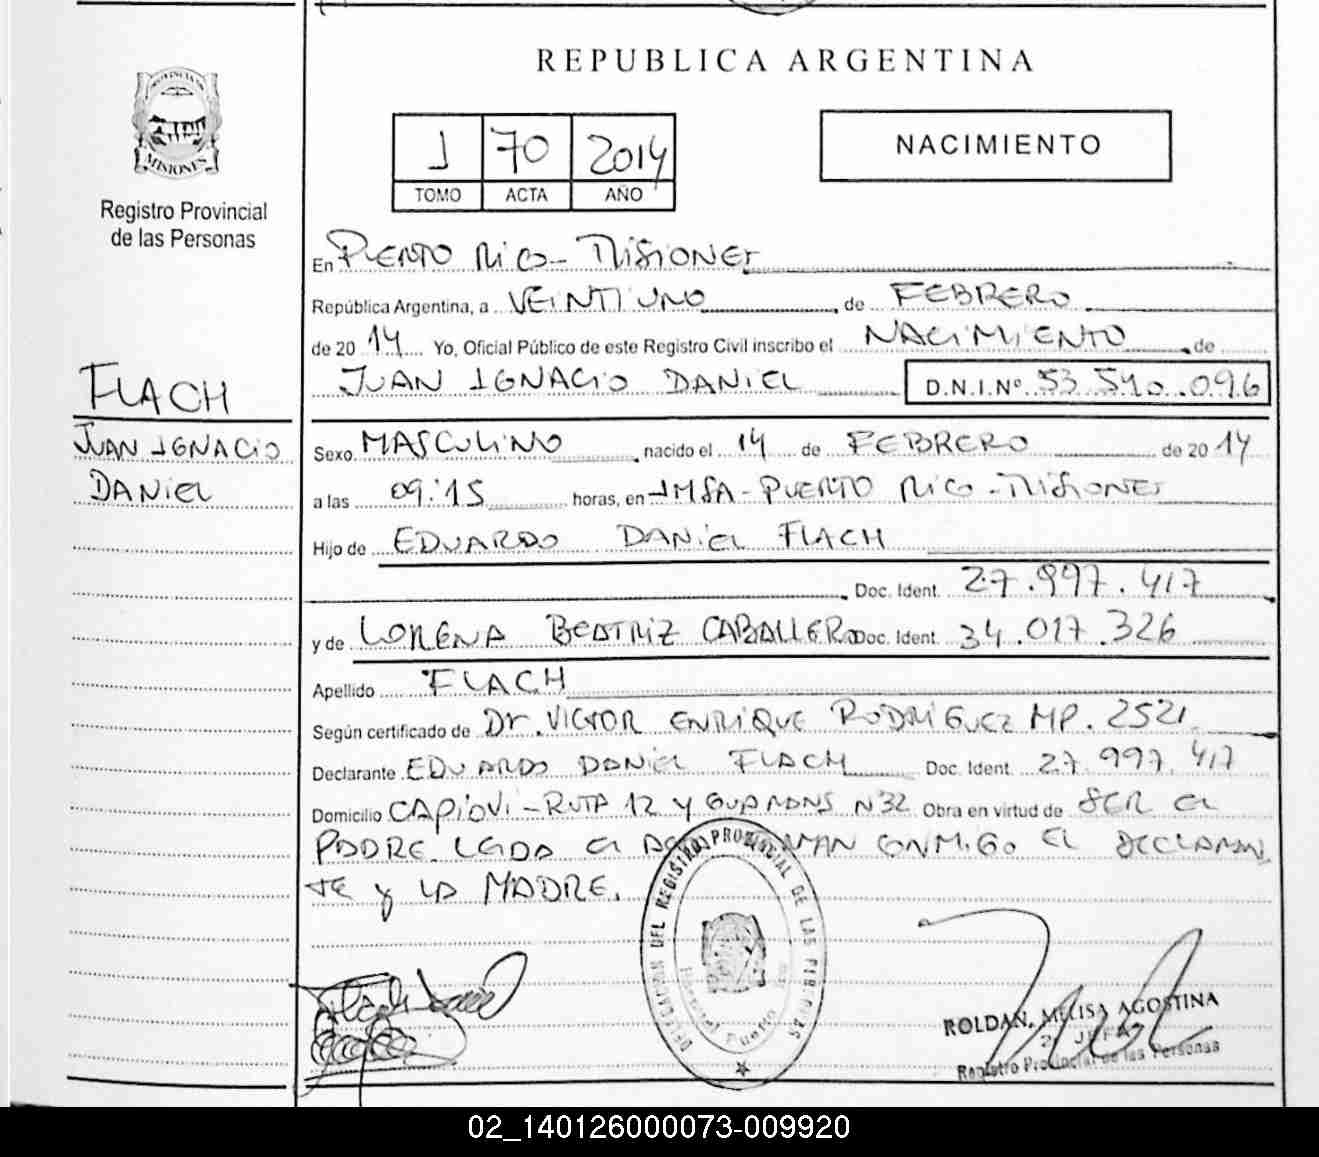 REPUBLICA ARGENTINA
PROVINCIA DE
MISIONES
Registro Provincial
de las Personas
1 70 2014
TOMO ACTA AÑO
NACIMIENTO
En PUERTO RICO - MISIONES
República Argentina, a VEINTIUNO de FEBRERO
de 2014 Yo, Oficial Público de este Registro Civil inscribo el NACIMIENTO de
JUAN IGNACIO DANIEL D.N.I.Nº 53.540.096
FLACH
JUAN IGNACIO
DANIEL
Sexo MASCULINO nacido el 14 de FEBRERO de 2014
a las 09:15 horas, en IMSA - PUERTO RICO - MISIONES
Hijo de EDUARDO DANIEL FLACH
Doc. Ident. 27.997.417
y de LORENA BEATRIZ CABALLERO Doc. Ident. 34.017.326
Apellido FLACH
Según certificado de Dr. VICTOR ENRIQUE RODRIGUEZ MP. 2521
Declarante EDUARDO DANIEL FLACH Doc. Ident. 27.997.417
Domicilio CAPIOVI - RUTA 12 Y N 32 Obra en virtud de SER EL
PADRE. LEIDA EL CONMIGO EL DECLARAN
TE y LA MADRE.
DELEGACION DEL REGISTRO PROVINCIAL DE LAS PERSONAS
Puerto
ROLDAN, MELISA AGOSTINA
JEFA
Registro Provincial de las Personas
02_140126000073-009920